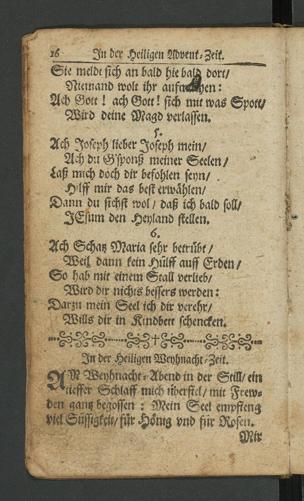 16 In der Heiligen Advent-Zeit.
Sie meldt sich an bald hie bald dort/
Niemand wolt ihr aufmachen:
Ach Gott! ach Gott! sich mit was Spott/
Wird deine Magd verlassen.
5.
Ach Joseph lieber Joseph mein/
Ach du G'sponß meiner Seelen/
Laß mich doch dir befohlen seyn/
Hilff mir das best erwählen/
Dann du sichst wol/ daß ich bald soll/
JEsum den Heyland stellen.
6.
Ach Schatz Maria sehr betrübt/
Weil dann kein Hülff auff Erden/
So hab mit einem Stall verlieb/
Wird dir nichts bessers werden:
Darzu mein Seel ich dir verehr/
Wills dir in Kindbett schencken.
In der Heiligen Weyhnacht-Zeit.
AM Weyhnacht-Abend in der Still/ ein
tieffer Schlaff mich überfiel/ mit Frew-
den gantz begossen: Mein Seel empfieng
viel Süssigkeit/ für Hönig vnd für Rosen.
Mir